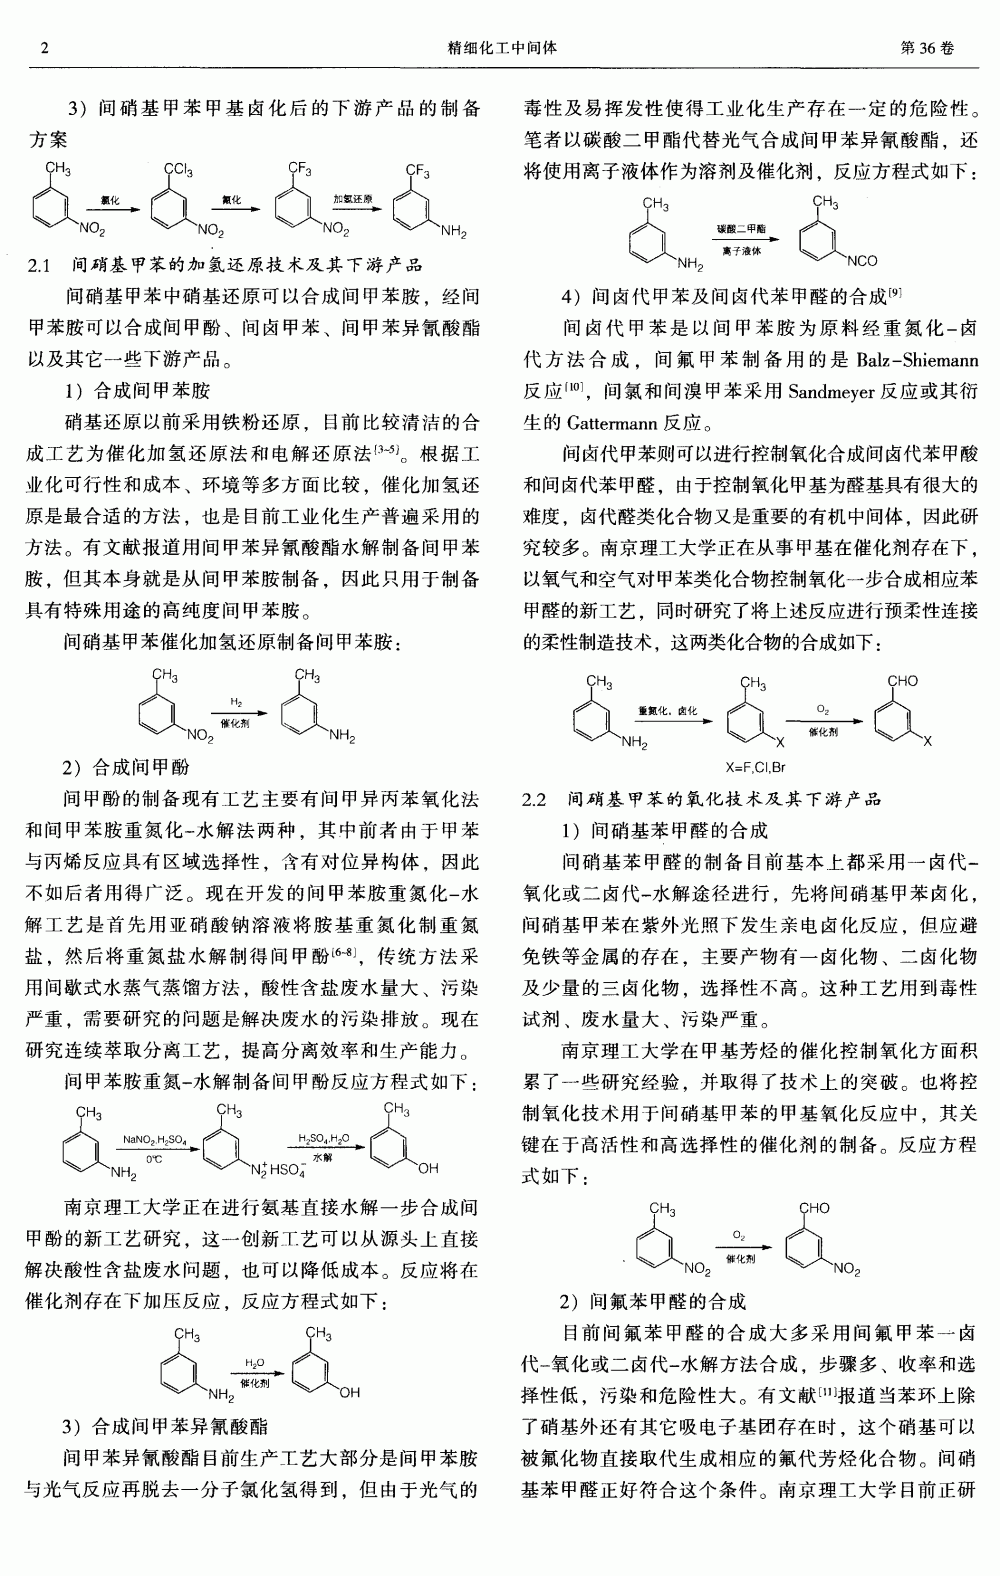 2
精细化工中间体
第 36 卷
3）间硝基甲苯甲基卤化后的下游产品的制备
方案
CH3
NO2
氯化
CCl3
NO2
氟化
CF3
NO2
加氢还原
CF3
NH2
2.1 间硝基甲苯的加氢还原技术及其下游产品
间硝基甲苯中硝基还原可以合成间甲苯胺，经间
甲苯胺可以合成间甲酚、间卤甲苯、间甲苯异氰酸酯
以及其它一些下游产品。
1）合成间甲苯胺
硝基还原以前采用铁粉还原，目前比较清洁的合
成工艺为催化加氢还原法和电解还原法[3-5]。根据工
业化可行性和成本、环境等多方面比较，催化加氢还
原是最合适的方法，也是目前工业化生产普遍采用的
方法。有文献报道用间甲苯异氰酸酯水解制备间甲苯
胺，但其本身就是从间甲苯胺制备，因此只用于制备
具有特殊用途的高纯度间甲苯胺。
间硝基甲苯催化加氢还原制备间甲苯胺：
CH3
NO2
H2
催化剂
CH3
NH2
2）合成间甲酚
间甲酚的制备现有工艺主要有间甲异丙苯氧化法
和间甲苯胺重氮化-水解法两种，其中前者由于甲苯
与丙烯反应具有区域选择性，含有对位异构体，因此
不如后者用得广泛。现在开发的间甲苯胺重氮化-水
解工艺是首先用亚硝酸钠溶液将胺基重氮化制重氮
盐，然后将重氮盐水解制得间甲酚[6-8]，传统方法采
用间歇式水蒸气蒸馏方法，酸性含盐废水量大、污染
严重，需要研究的问题是解决废水的污染排放。现在
研究连续萃取分离工艺，提高分离效率和生产能力。
间甲苯胺重氮-水解制备间甲酚反应方程式如下：
CH3
NH2
NaNO2,H2SO4
0℃
CH3
N2+HSO4-
H2SO4,H2O
水解
CH3
OH
南京理工大学正在进行氨基直接水解一步合成间
甲酚的新工艺研究，这一创新工艺可以从源头上直接
解决酸性含盐废水问题，也可以降低成本。反应将在
催化剂存在下加压反应，反应方程式如下：
CH3
NH2
H2O
催化剂
CH3
OH
3）合成间甲苯异氰酸酯
间甲苯异氰酸酯目前生产工艺大部分是间甲苯胺
与光气反应再脱去一分子氯化氢得到，但由于光气的
毒性及易挥发性使得工业化生产存在一定的危险性。
笔者以碳酸二甲酯代替光气合成间甲苯异氰酸酯，还
将使用离子液体作为溶剂及催化剂，反应方程式如下：
CH3
NH2
碳酸二甲酯
离子液体
CH3
NCO
4）间卤代甲苯及间卤代苯甲醛的合成[9]
间卤代甲苯是以间甲苯胺为原料经重氮化-卤
代方法合成，间氟甲苯制备用的是 Balz-Shiemann
反应[10]，间氯和间溴甲苯采用 Sandmeyer 反应或其衍
生的 Gattermann 反应。
间卤代甲苯则可以进行控制氧化合成间卤代苯甲酸
和间卤代苯甲醛，由于控制氧化甲基为醛基具有很大的
难度，卤代醛类化合物又是重要的有机中间体，因此研
究较多。南京理工大学正在从事甲基在催化剂存在下，
以氧气和空气对甲苯类化合物控制氧化一步合成相应苯
甲醛的新工艺，同时研究了将上述反应进行预柔性连接
的柔性制造技术，这两类化合物的合成如下：
CH3
NH2
重氮化，卤化
CH3
X
O2
催化剂
CHO
X
X=F,Cl,Br
2.2 间硝基甲苯的氧化技术及其下游产品
1）间硝基苯甲醛的合成
间硝基苯甲醛的制备目前基本上都采用一卤代-
氧化或二卤代-水解途径进行，先将间硝基甲苯卤化，
间硝基甲苯在紫外光照下发生亲电卤化反应，但应避
免铁等金属的存在，主要产物有一卤化物、二卤化物
及少量的三卤化物，选择性不高。这种工艺用到毒性
试剂、废水量大、污染严重。
南京理工大学在甲基芳烃的催化控制氧化方面积
累了一些研究经验，并取得了技术上的突破。也将控
制氧化技术用于间硝基甲苯的甲基氧化反应中，其关
键在于高活性和高选择性的催化剂的制备。反应方程
式如下：
CH3
NO2
O2
催化剂
CHO
NO2
2）间氟苯甲醛的合成
目前间氟苯甲醛的合成大多采用间氟甲苯一卤
代-氧化或二卤代-水解方法合成，步骤多、收率和选
择性低，污染和危险性大。有文献[11]报道当苯环上除
了硝基外还有其它吸电子基团存在时，这个硝基可以
被氟化物直接取代生成相应的氟代芳烃化合物。间硝
基苯甲醛正好符合这个条件。南京理工大学目前正研